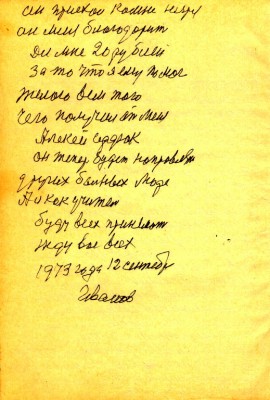 он приехал ко мне и ...
он меня благодарит
Дал мне 20 рублей
За то что я ему помог
Желаю вем того
чего получил от меня
Алексей
он теперь будет направлять
других больных люде
А я как учител
буду всех принемать
жду вас всех
1973 года 12 сентебр
Иванов